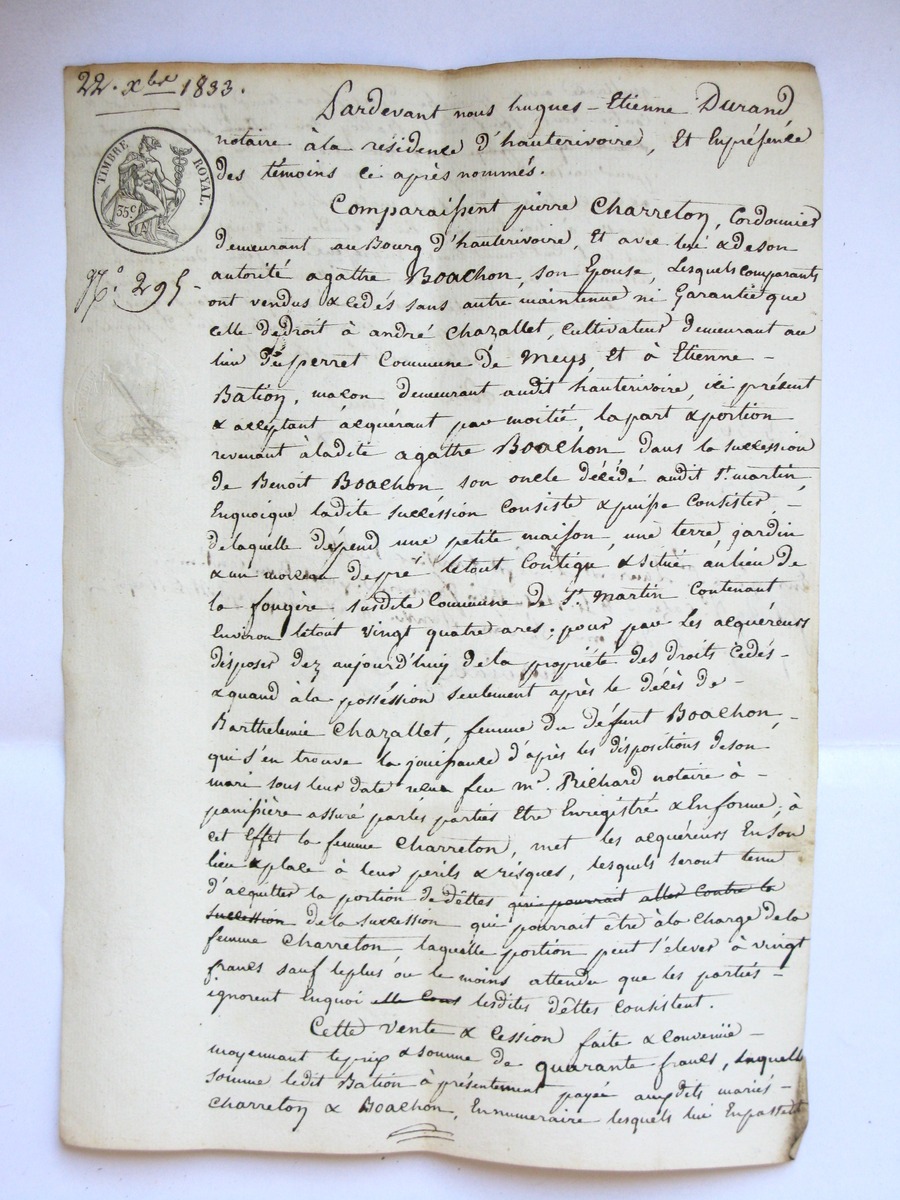 22. xbre 1833.
Pardevant nous hugues-Etienne Durand
notaire à la résidence d'hauterivoire, Et Enprésence
des témoins ci après nommés.
TIMBRE ROYAL.
35c
Comparaissent pierre Charreton, Cordonnier
demeurant au Bourg d'hauterivoire, Et avec lui & de son
autorité agathe Boachon, son Epouse, Lesquels comparants
No. 295-
ont vendus & cedés sans autre maintenue ni Garantie que
celle de droit à andré Chazallet, cultivateur demeurant au
lieu du perret Commune de Meys Et à Etienne -
Bation, maçon demeurant audit hauterivoire, ici présent
& acceptant acquérant par moitié, la part & portion
revenant à ladite agathe Boachon dans la succession
de Benoit Boachon son oncle décédé audit St. martin,
Enquoique ladite succéssion consiste & puisse consister, -
de laquelle dépend une petite maison, une terre, jardin
& un morceau de pré le tout Contigu & situé au lieu de
la fougère susdite Commune de St. Martin Contenant
Environ letout vingt quatre ares; pour par Les acquéreurs
disposer dez aujourd'huy de la propriété des droits cédés -
& quand à la possession seulement après le décès de -
Barthelemie Chazallet, femme du défunt Boachon, -
qui s'en trouve la jouissance d'après les dispositions de son
mari sous leur date reçu feu me. Richard notaire à -
panissière assuré par les parties Etre Enregistré & Enforme; à
cet Effet la femme Charreton, met les acquéreurs En son
lieu & place à leur périls & risques, lesquels seront tenu
d'acquitter la portion de dêttes qui pourrait aller Contre la
succession de la succession qui pourrait être à la charge de la
femme Charreton laquelle portion peut s'élever à vingt
francs sauf leplus ou le moins attendu que les parties -
ignorent Enquoi elle Cons lesdites dêttes consistent.
Cette vente & Cession faite & Convenüe -
moyennant le prix & somme de quarante francs, Laquelle
somme ledit Bation à présentement payée auxdits mariés -
Charreton & Boachon, En numeraire lesquels lui Enpassent